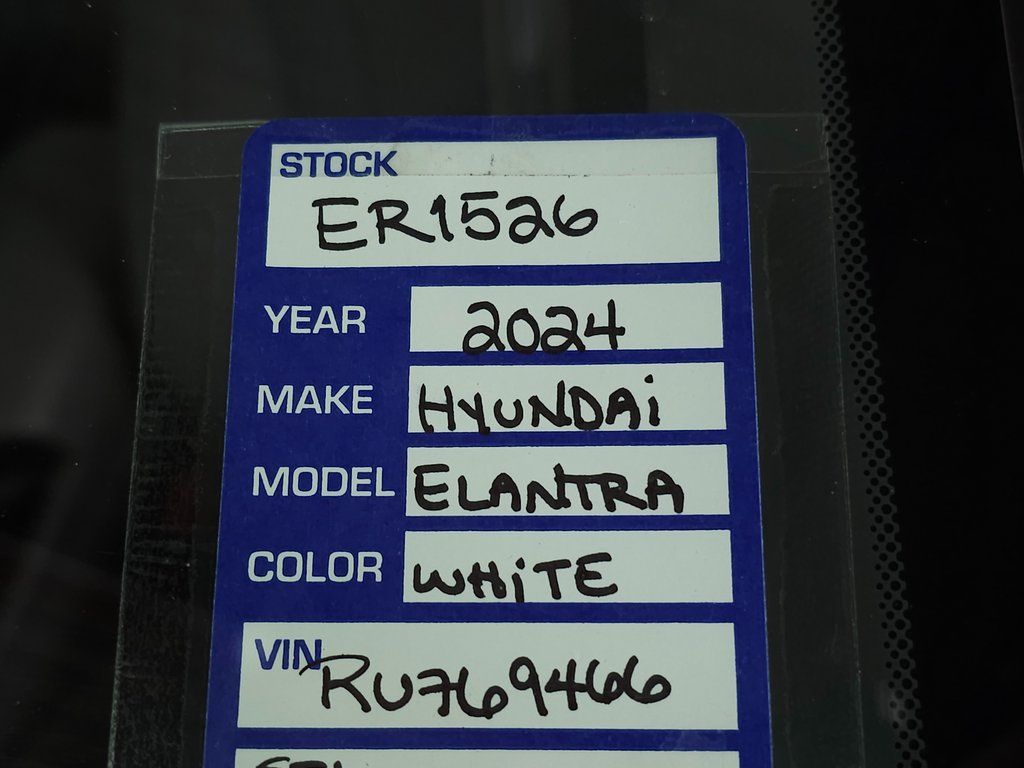 STOCK
ER1526
YEAR 2024
MAKE HYUNDAi
MODEL ELANTRA
COLOR WHiTE
VIN RU769466